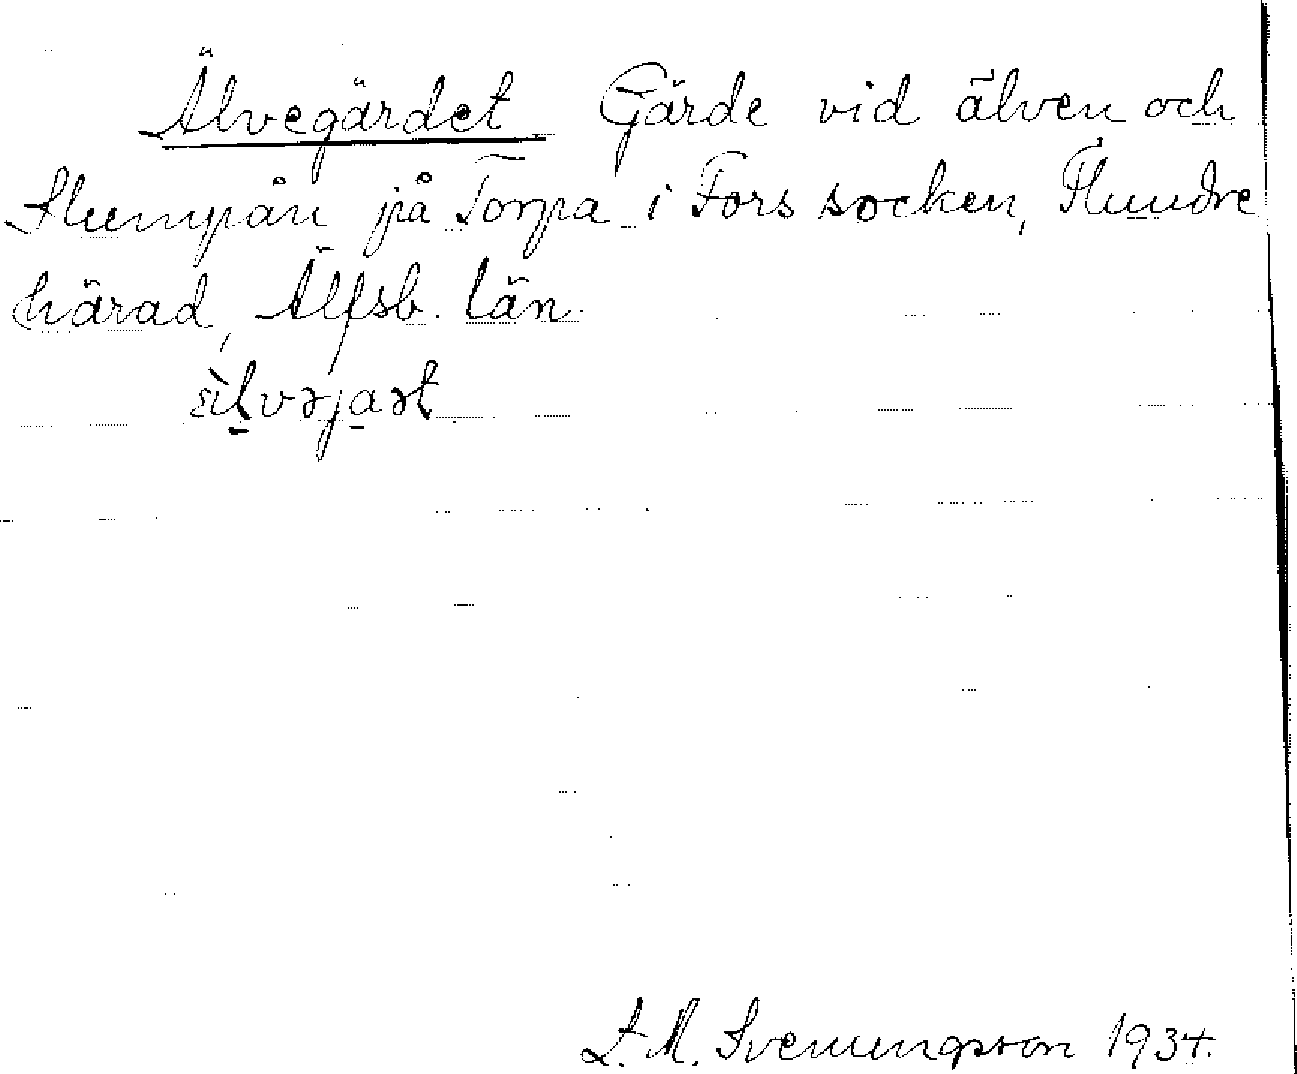 Älvegärdet Gärde vid älven och
Slumpån på Torpa i Fors socken, Flundre
härad, Älfsb. län.
L. M. Svenungsson 1934.